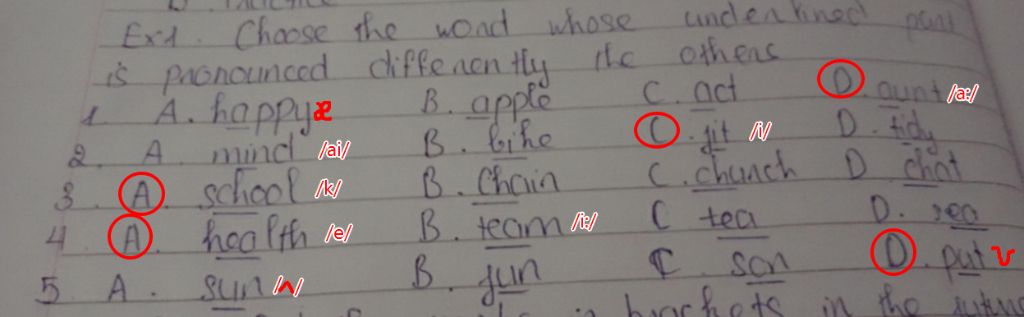 Ex1. Choose the word whose underlined part
is pronounced differently the others
1 A. happy æ B. apple C. act D. aunt /a:/
2. A. mind /ai/ B. bike C. fit /i/ D. tidy
3. A. school /k/ B. Chain C. church D. chat
4 A. health /e/ B. team /i:/ C tea D. sea
5 A. sun /ʌ/ B. fun C. son D. put ʊ
brackets in the future